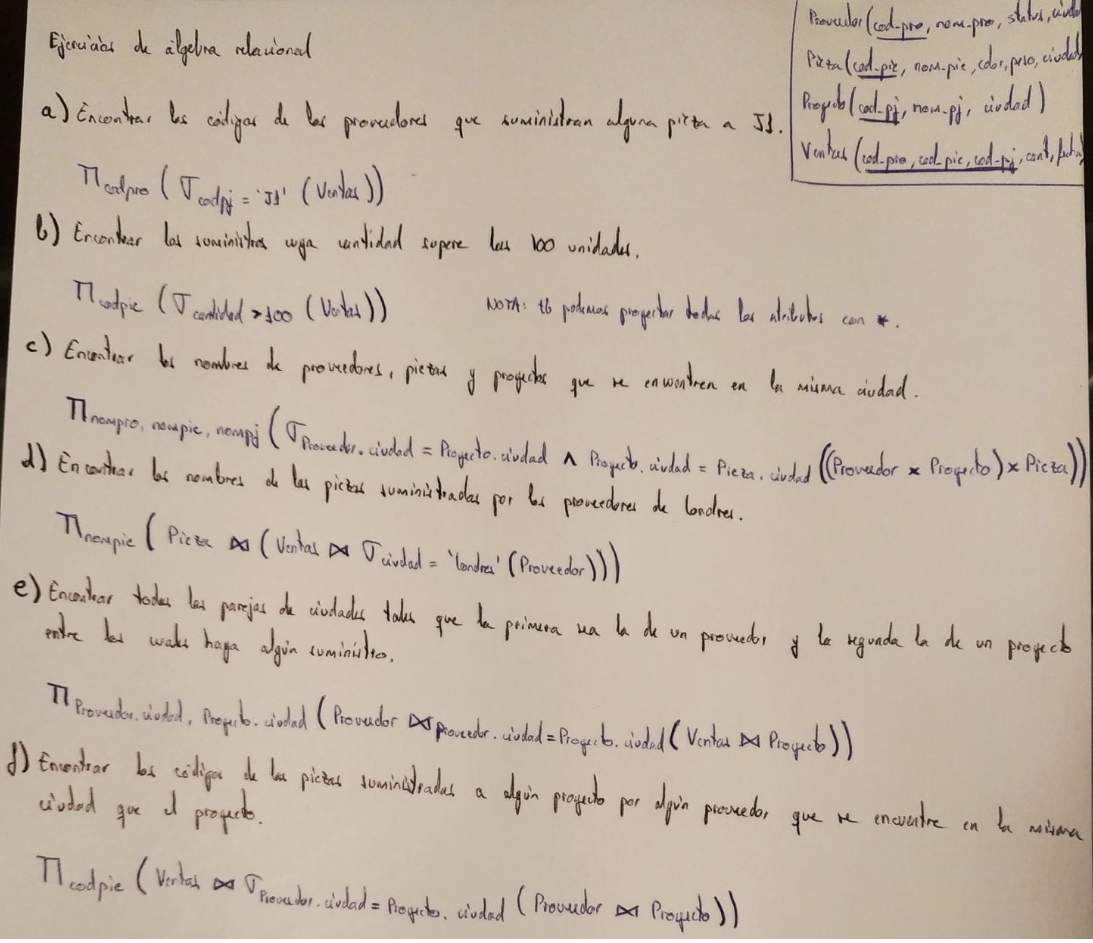 Ejercicios de álgebra relacional
Proveedor (cod-pro, nom-pro, status, ciudad
Pieza (cod-pie, nom-pie, color, peso, ciudad
Proyecto (cod-pj, nom-pj, ciudad)
Ventas (cod-pro, cod-pie, cod-pj, cant, fecha)
a) Encontrar los códigos de los proveedores que suministran alguna pieza a J1.
Π codpro ( σ codpj = 'J1' ( Ventas ))
b) Encontrar los suministros cuya cantidad supere las 100 unidades.
Π codpie ( σ cantidad > 100 ( Ventas ))
NOTA: tb podemos proyectar todos los atributos con *.
c) Encontrar los nombres de proveedores, piezas y proyectos que se encuentren en la misma ciudad.
Π nompro, nompie, nompj ( σ Proveedor.ciudad = Proyecto.ciudad ∧ Proyecto.ciudad = Pieza.ciudad ((Proveedor × Proyecto) × Pieza))
d) Encontrar los nombres de las piezas suministradas por los proveedores de londres.
Π nompie ( Pieza ⋈ ( Ventas ⋈ σ ciudad = 'londres' ( Proveedor )))
e) Encontrar todas las parejas de ciudades tales que la primera sea la de un proveedor y la segunda la de un proyecto
entre los cuales haya algún suministro.
Π Proveedor.ciudad, Proyecto.ciudad ( Proveedor ⋈ Proveedor.ciudad = Proyecto.ciudad ( Ventas ⋈ Proyecto ))
f) Encontrar los códigos de las piezas suministradas a algún proyecto por algún proveedor que se encuentre en la misma
ciudad que el proyecto.
Π codpie ( Ventas ⋈ σ Proveedor.ciudad = Proyecto.ciudad ( Proveedor ⋈ Proyecto ))